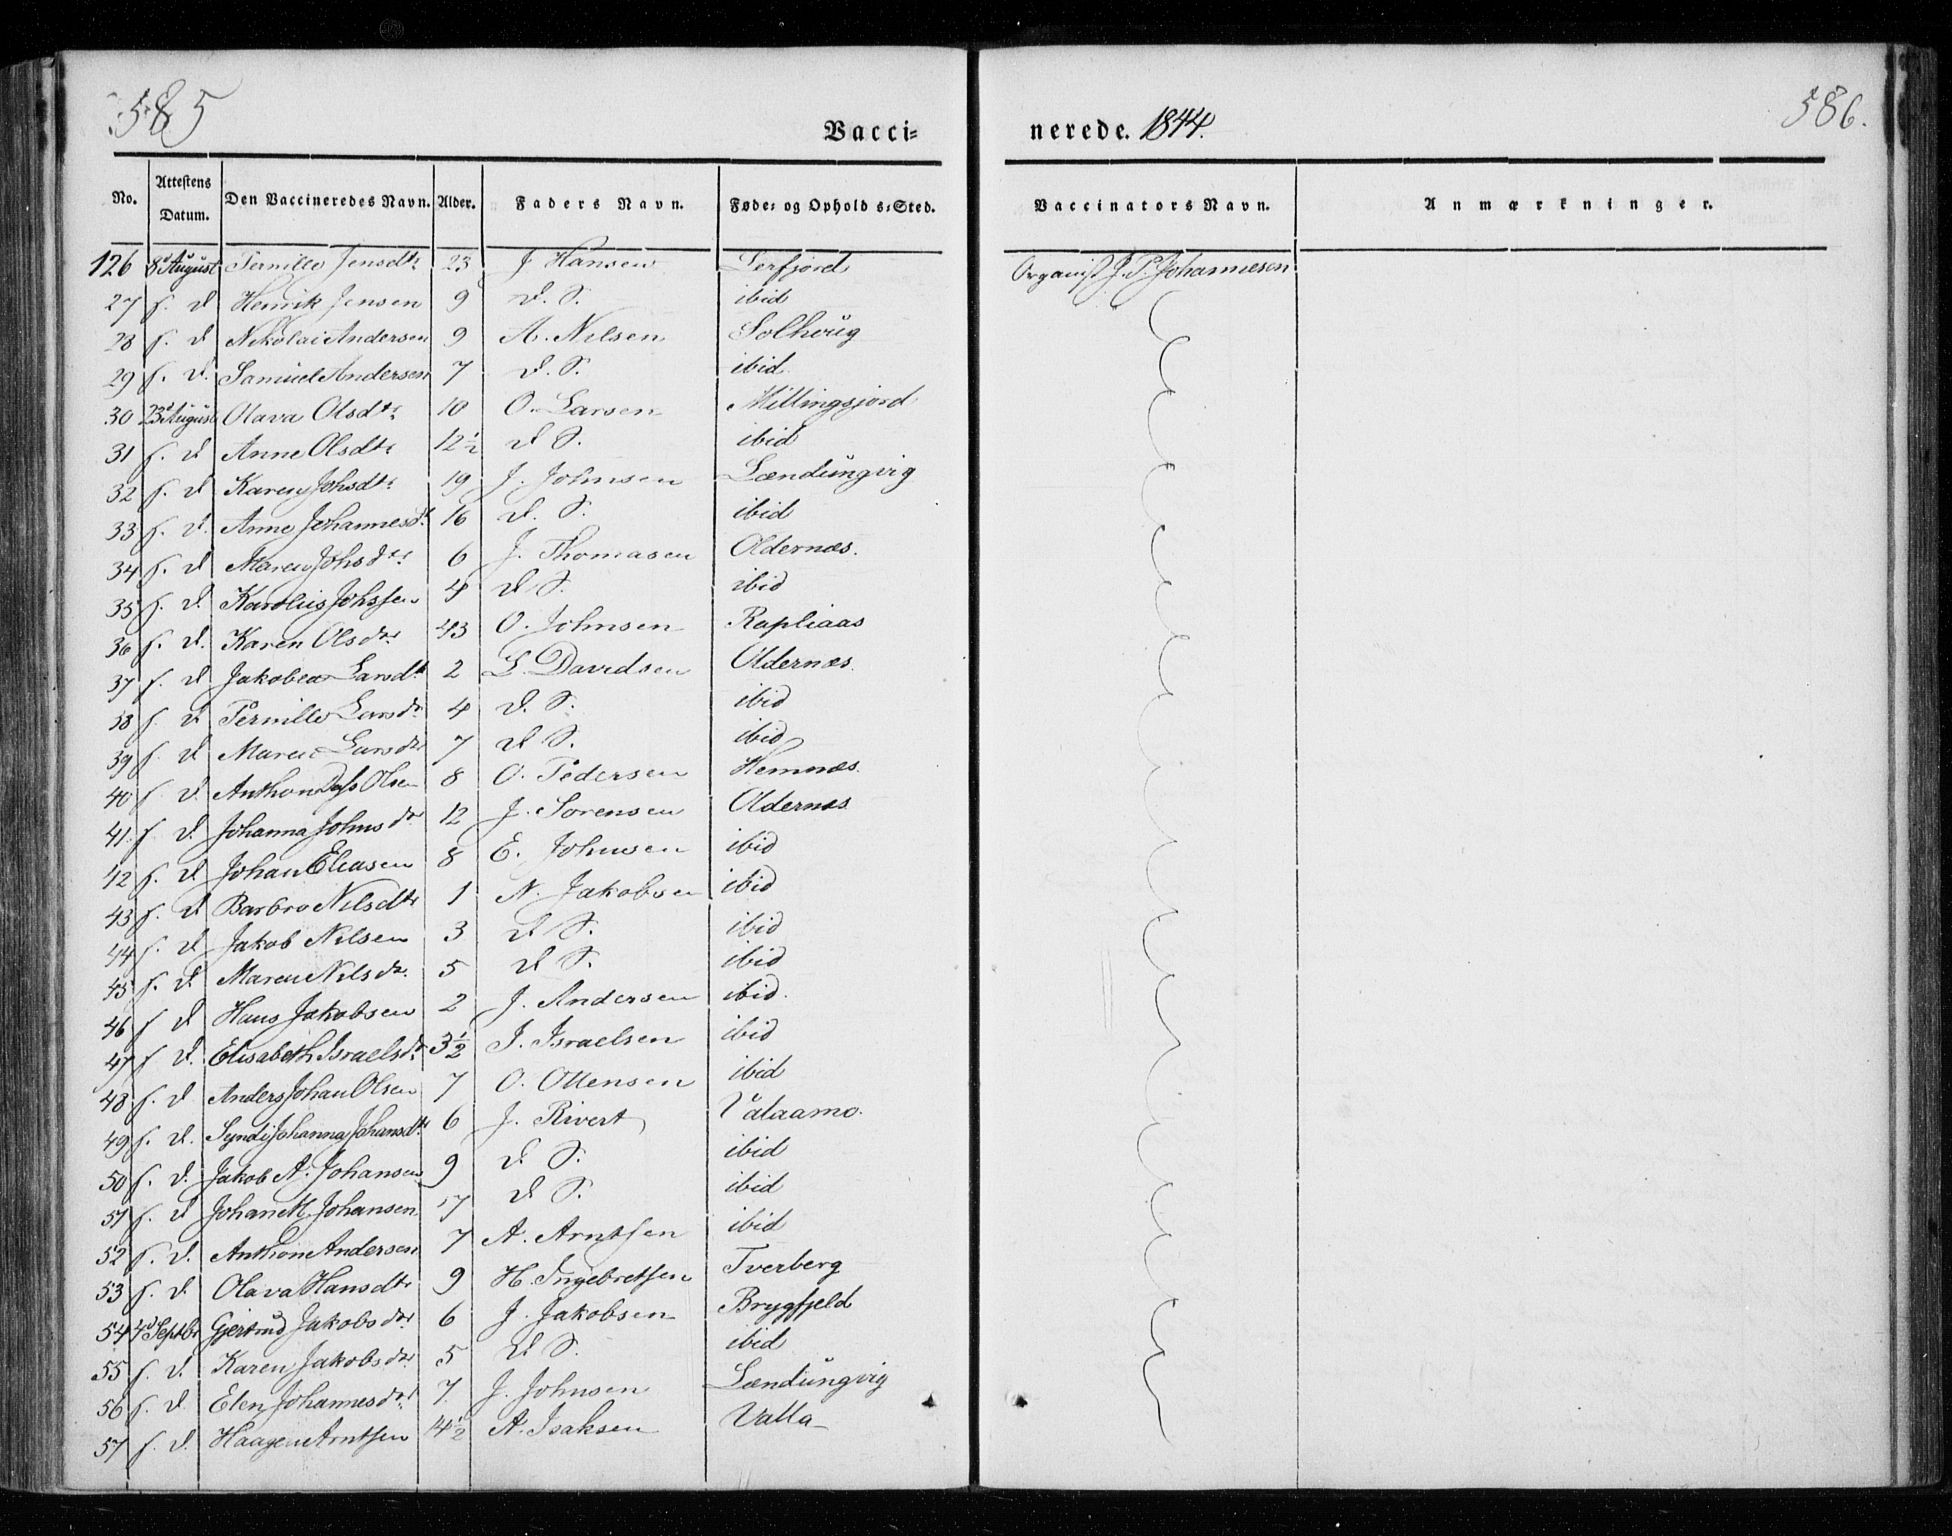 585
Vacci-
nerede. 1844.
586.
No. Attestens Datum. Den Vaccineredes Navn. Alder. Faders Navn. Føde- og Ophold s-Sted. Vaccinators Navn. Anmærkninger.
126 8d August Pernille Jensdtr 23 J Hansen Lerfjord Organist J. P. Johannesen
27 s. d Henrik Jensen 9 d. S. ibid
28 s. d Nikolai Andersen 9 A. Nilsen Solhoug
29 s. d. Samuel Andersen 7 d. S. ibid
30 23d August Olava Olsdtr 10 O. Larsen Millingsjord
31 s. d Anne Olsdtr 12½ d S. ibid
32 s. d Karen Johsdtr 19 J. Johnsen Lændungvig
33 s. d. Anne Johannesdt. 16 d. S. ibid
34 s. d Maren Johsdtr 6 J. Thomasen Oldernæs.
35 s. d. Karolius Johssen 4 d S. ibid
36 s. d. Karen Olsdtr 43 O. Johnsen Rapliaas
37 s. d Jakobea Larsdt 2 L. Davidsen Oldernæs.
38 s. d. Pernille Larsdr 4 d. S. ibid
39 s. d Maren Larsdtr 7 d S. ibid
40 s d. Anthon Dass Olsen 8 O. Pedersen Hemnæs.
41. s d. Johanna Johnsdtr 12 J. Sorensen Oldernæs
42 s. d. Johan Eliasen 8 E. Johnsen ibid
43 s. d Barbro Nilsdtr 1 N. Jakobsen ibid
44 s. d. Jakob Nilsen 3 d S. ibid
45 s. d. Maren Nilsdr. 5 d S. ibid
46 s d Hans Jakobsen 2 J. Andersen ibid.
47 s d. Elisabeth Israelsdr. 3½ I. Israelsen ibid
48 s. d Anders Johan Olsen 7 O. Ottensen ibid
49 s. d. Syndi Johanna Johansdtr 6 J. Rivert Vataamo.
50 s. d. Jakob A. Johansen 9 d S. ibid
51 s. d Johan M. Johansen 17 d S. ibid
52 s. d. Anthon Andersen 7 A. Arntsen ibid
53 s. d Olava Hansdtr 9 H. Ingebretsen Tverberg
54 4d Septbr Gjertrud Jakobsdtr 6 J. Jakobsen Brygfjeld
55 s. d. Karen Jakobsdtr 5 d S. ibid
56 s. d Elen Johannesdtr 7. J. Johnsen Lændungvig
57 s. d. Haagen Arntsen 14½ A. Isaksen Valla